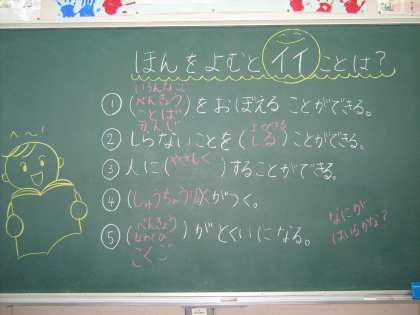 ほんをよむとイイことは？
①(いろんなこと べんきょう ことば かんじ)をおぼえることができる。
②しらないことを(しる)ことができる。
③人に(やさしく)することができる。
④(しゅうちゅう力)がつく。
⑤(べんきょう こくご)がとくいになる。
なにが
はいるかな？